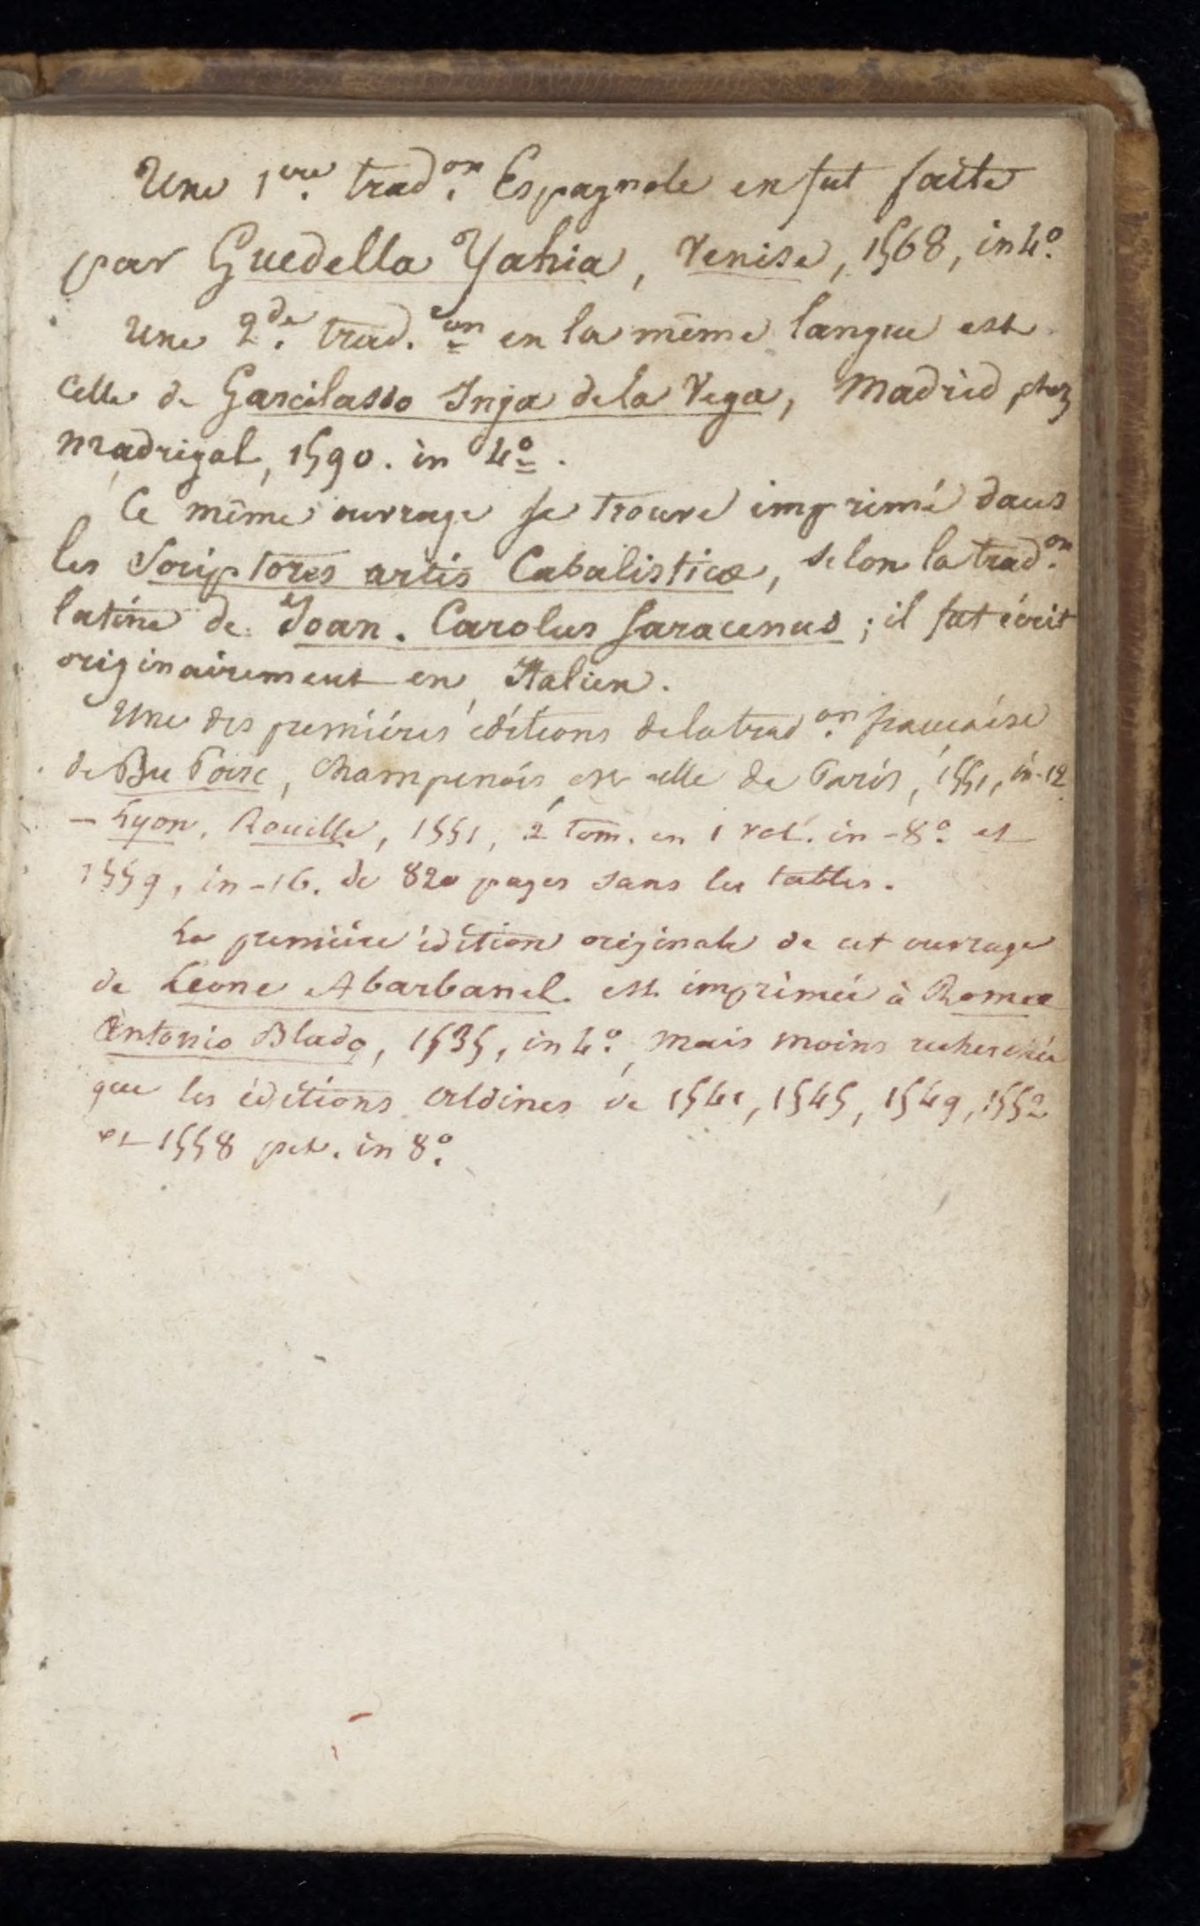 Une 1ere. trad.on Espagnole en fut faite
par Guedella Yahia, Venise, 1568, in 4.o
Une 2.de trad.on en la même langue est
celle de Garcilasso Inga de la Vega, Madrid, chez
Madrigal, 1590. in 4o.
Ce même ouvrage se trouve imprimé dans
les Scriptores artis Cabalisticæ, selon la trad.on
latine de Joan. Carolus Saracenus; il fut écrit
originairement en Italien.
Une des premières éditions de la trad.on française
de Du Parc, Champenois est celle de Paris, 1551, in-12
- Lyon, Rouille, 1551, 2 tom. en 1 vol. in-8.o et
1559, in-16. de 820 pages sans les tables.
La première édition originale de cet ouvrage
de Léone Abarbanel est imprimée à Rome
Antonio Blado, 1535, in 4.o, mais moins recherchée
que les éditions aldines de 1541, 1545, 1549, 1552
et 1558 pet. in 8.o